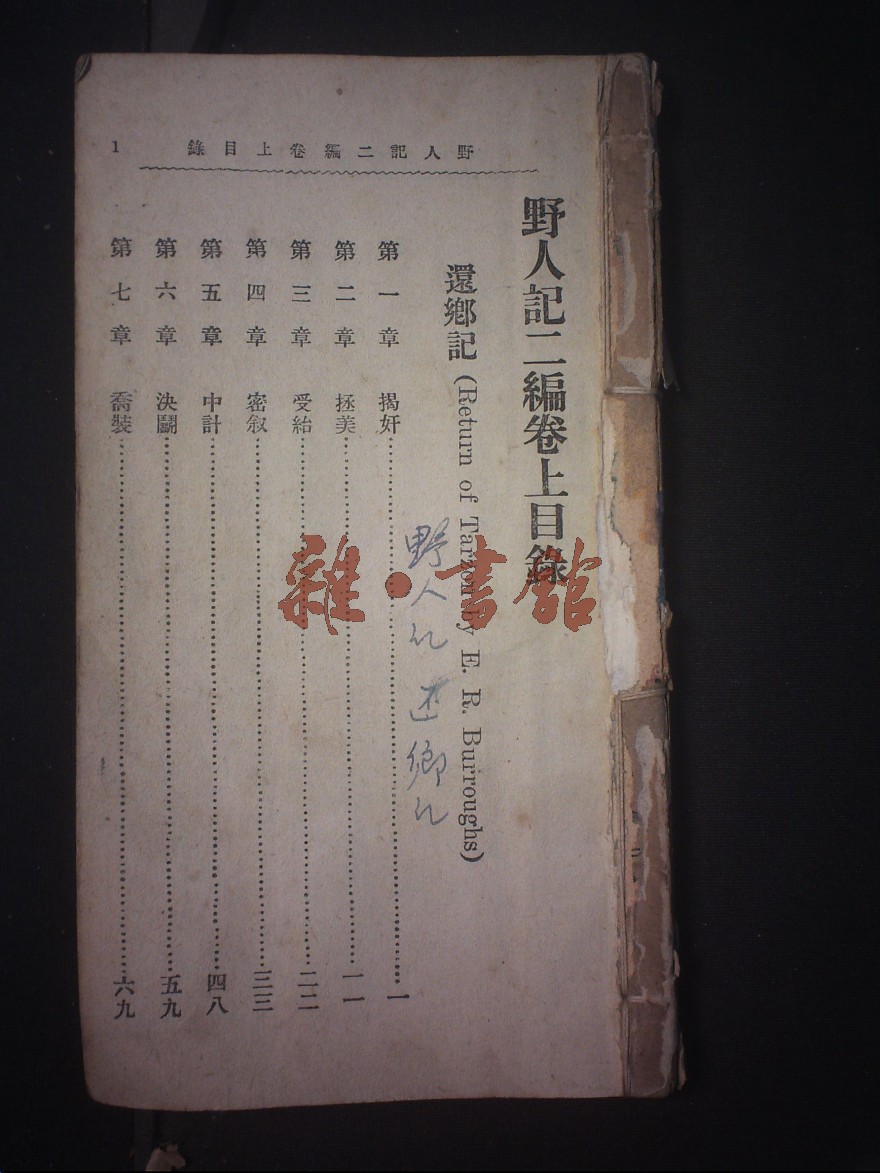 野人記二編卷上目錄 1
野人記二編卷上目錄
還鄉記 (Return of Tarzon by E. R. Burroughs)
第一章 揭奸 一
第二章 拯美 一一
第三章 受紿 二二
第四章 密敘 三三
第五章 中計 四八
第六章 決鬭 五九
第七章 喬裝 六九
野人记 还鄉记
雜·書館